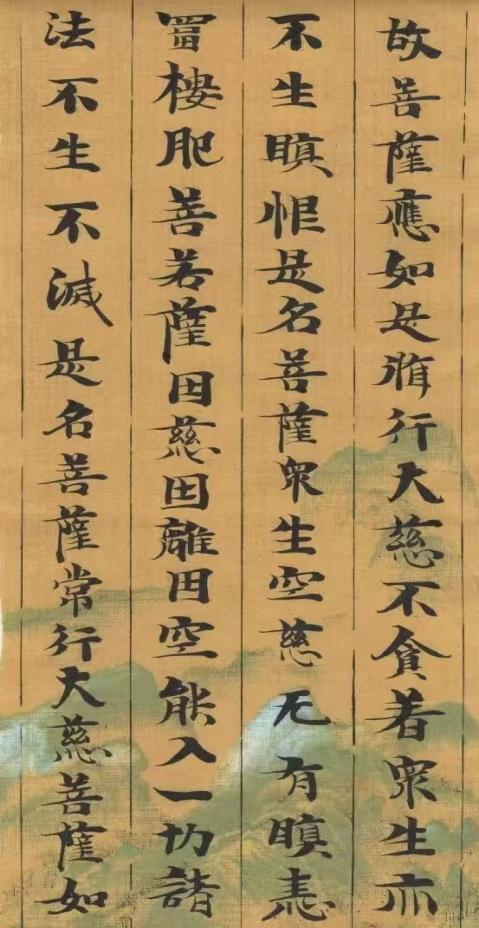 故菩薩應如是脩行大慈不貪着衆生亦
不生瞋恨是名菩薩衆生空慈无有瞋恚
樓肥菩若薩因慈因離因空能入一切諸
法不生不滅是名菩薩常行大慈菩薩如